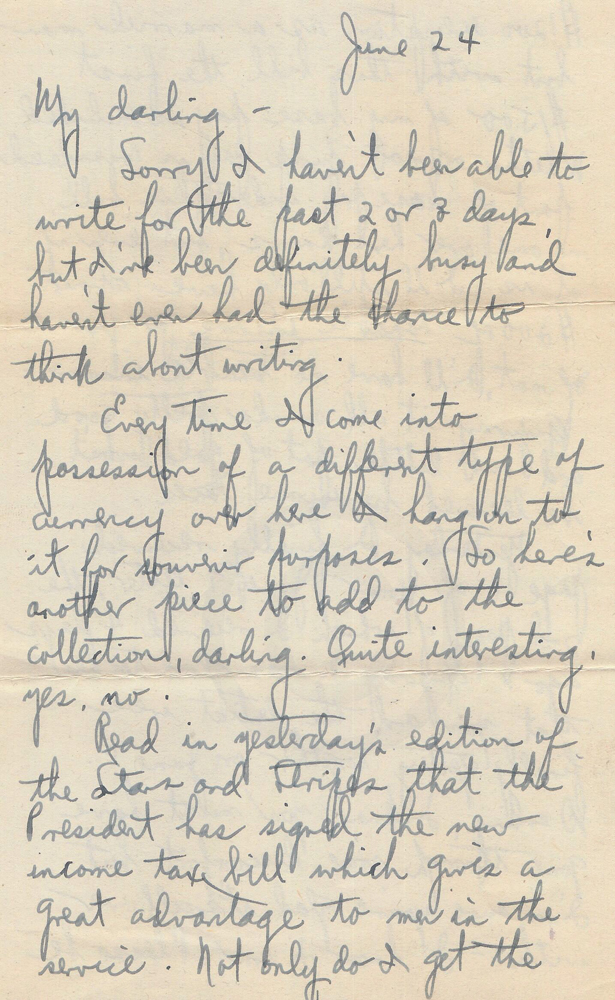 June 24
My darling -
Sorry I haven't been able to
write for the past 2 or 3 days
but I've been definitely busy and
haven't even had the chance to
think about writing.
Every time I come into
possession of a different type of
currency over here I hang on to
it for souvenir purposes. So here's
another piece to add to the
collection, darling. Quite interesting,
yes, no.
Read in yesterday's edition of
the Stars and Stripes that the
President has signed the new
income tax bill which gives a
great advantage to men in the
service. Not only do I get the